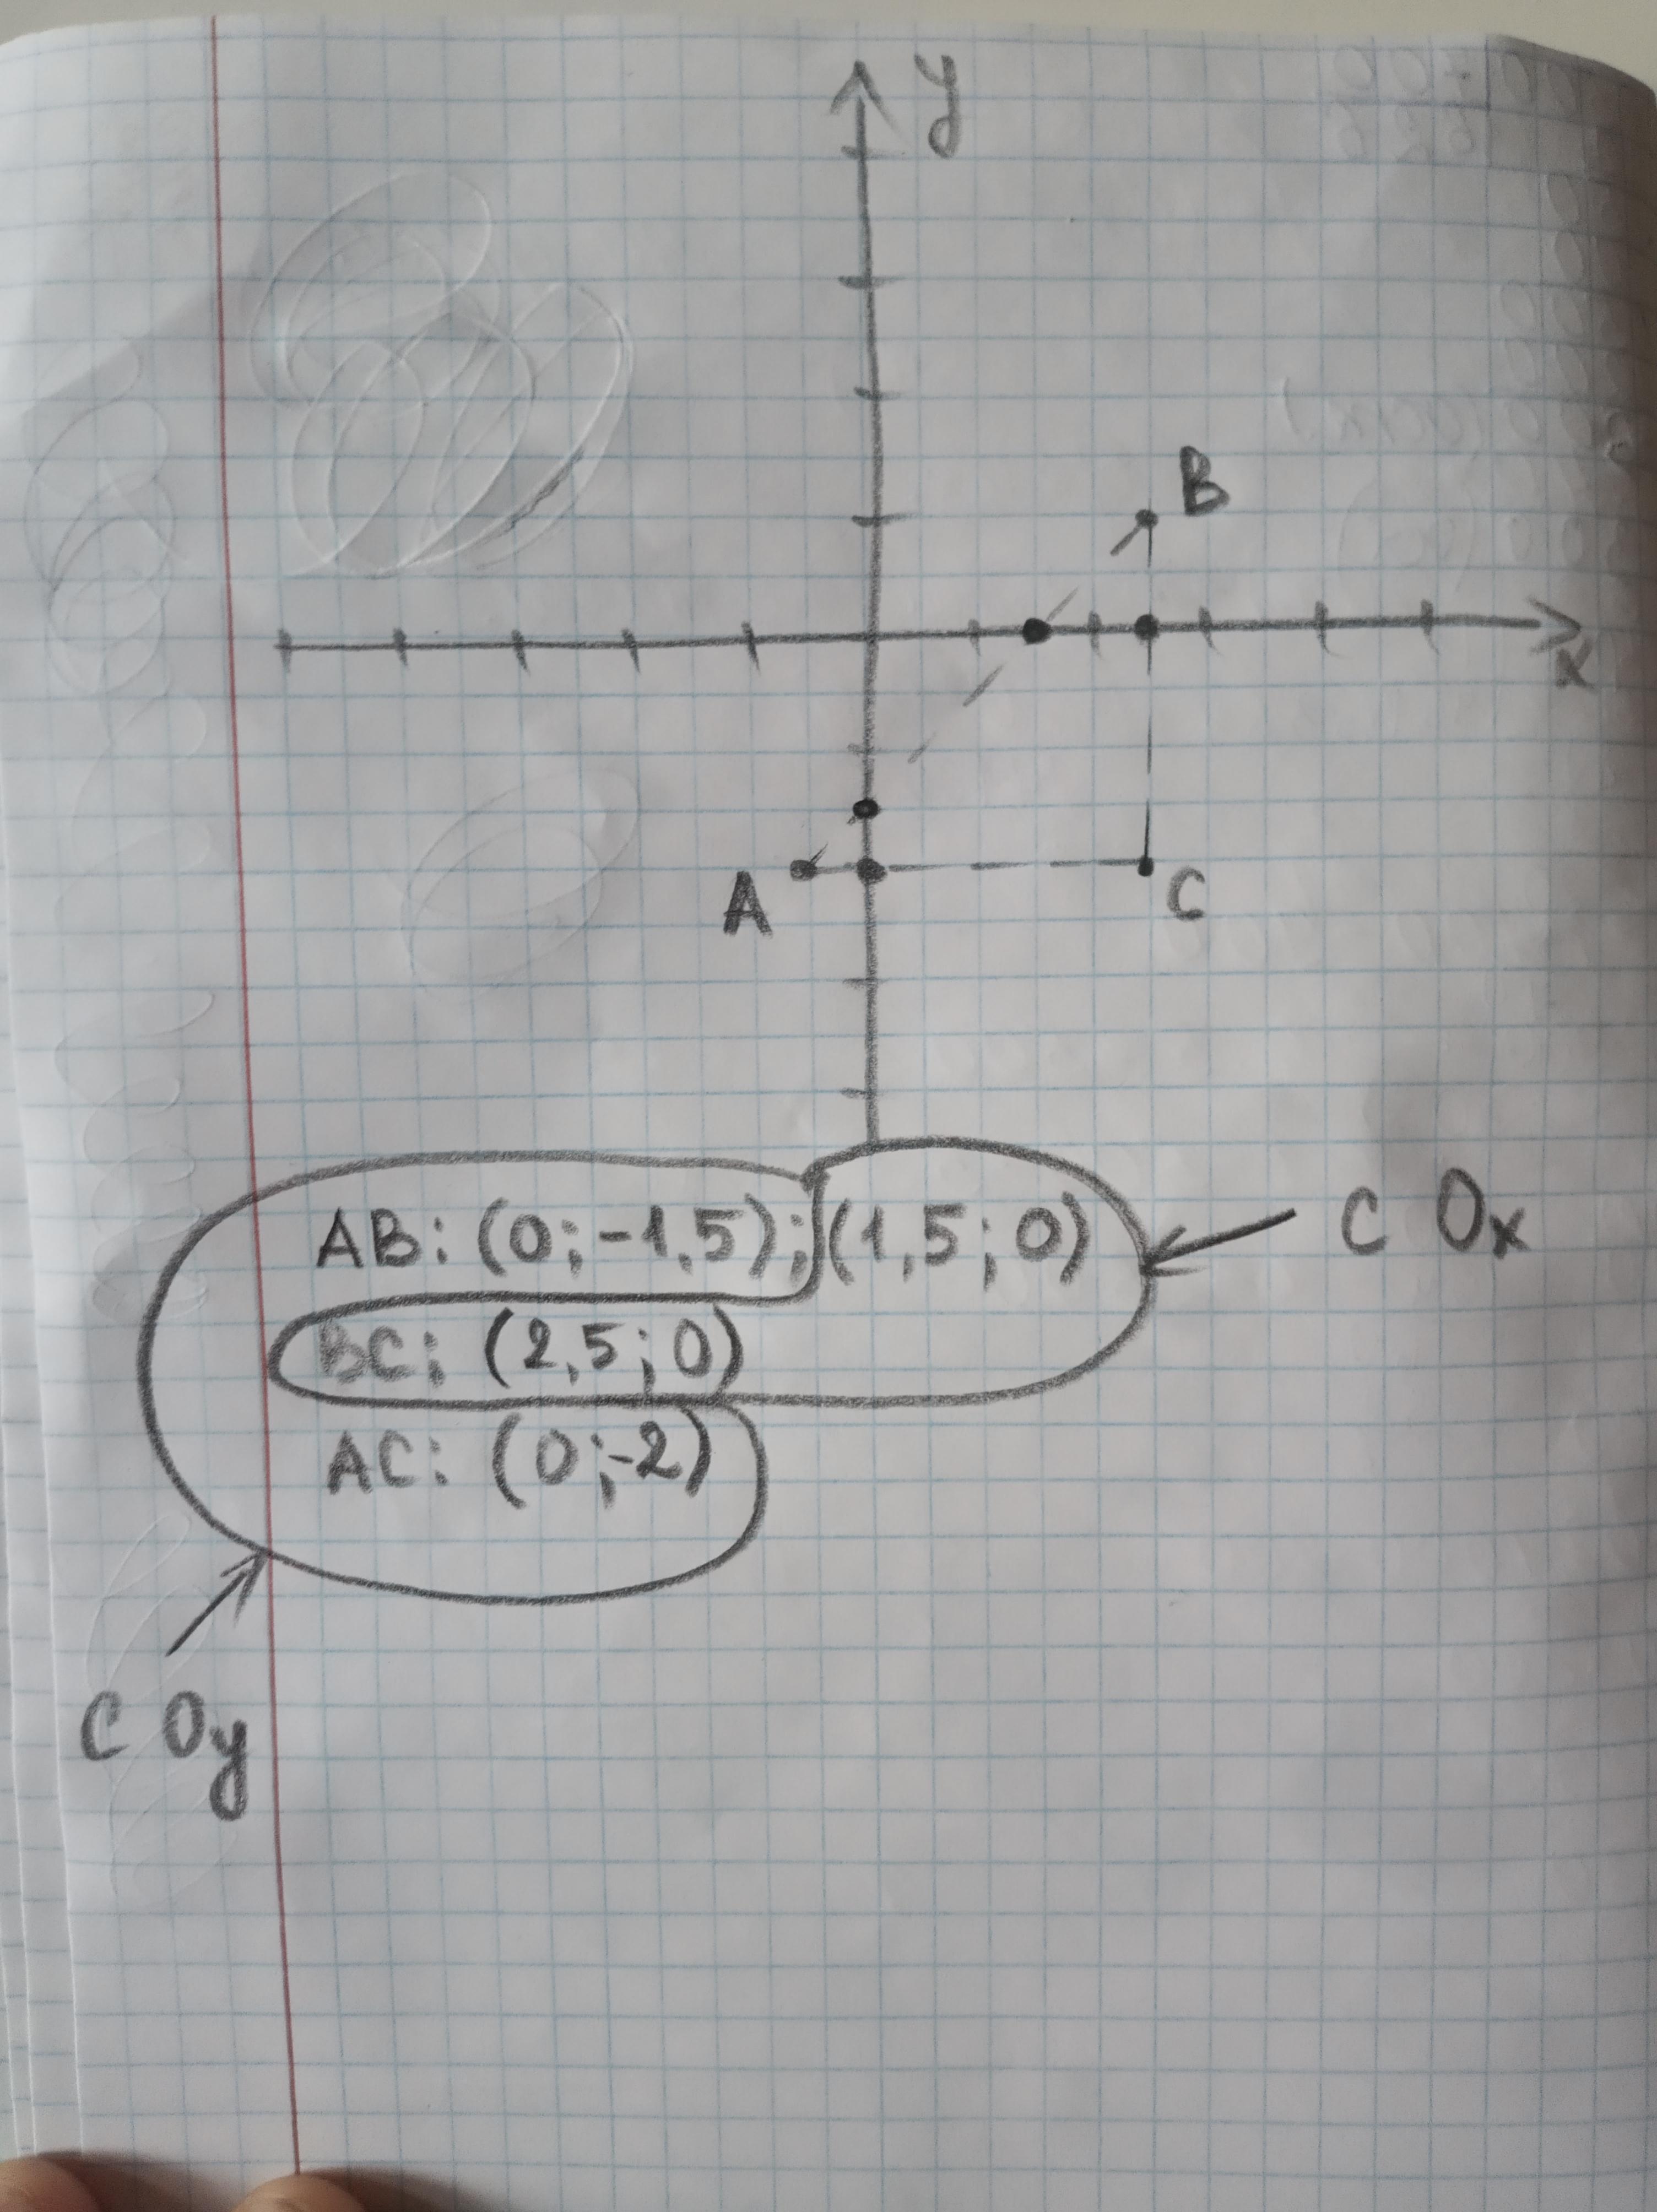 y
B
x
A
C
AB: (0; -1,5); (1,5; 0)
С Ox
BC: (2,5; 0)
AC: (0; -2)
С Oy